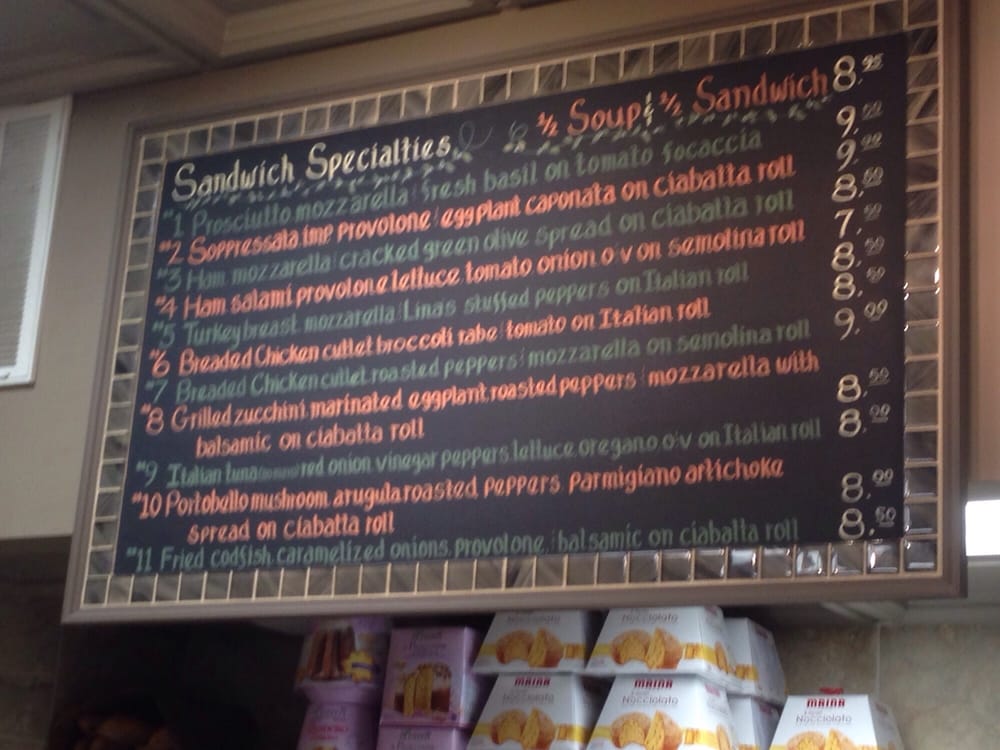 Sandwich Specialties ½ Soup & ½ Sandwich 8.95
#1 Prosciutto mozzarella fresh basil on tomato focaccia 9.00
#2 Soppressata imp provolone eggplant caponata on ciabatta roll 9.00
#3 Ham mozzarella cracked green olive spread on ciabatta roll 8.50
#4 Ham salami provolone lettuce tomato onion o v on semolina roll 7.50
#5 Turkey breast mozzarella Lina's stuffed peppers on Italian roll 8.50
#6 Breaded Chicken cutlet broccoli rabe tomato on Italian roll 8.50
#7 Breaded Chicken cutlet roasted peppers mozzarella on semolina roll 9.00
#8 Grilled zucchini marinated eggplant roasted peppers mozzarella with
balsamic on ciabatta roll 8.50
#9 Italian tuna red onion vinegar peppers lettuce oregano o'v on Italian roll 8.00
#10 Portobello mushroom arugula roasted peppers Parmigiano artichoke
spread on ciabatta roll 8.00
#11 Fried codfish caramelized onions provolone balsamic on ciabatta roll 8.50
Nocciolato
MAINA
Nocciolato
MAINA
Nocciolato
MAINA
Nocciolato